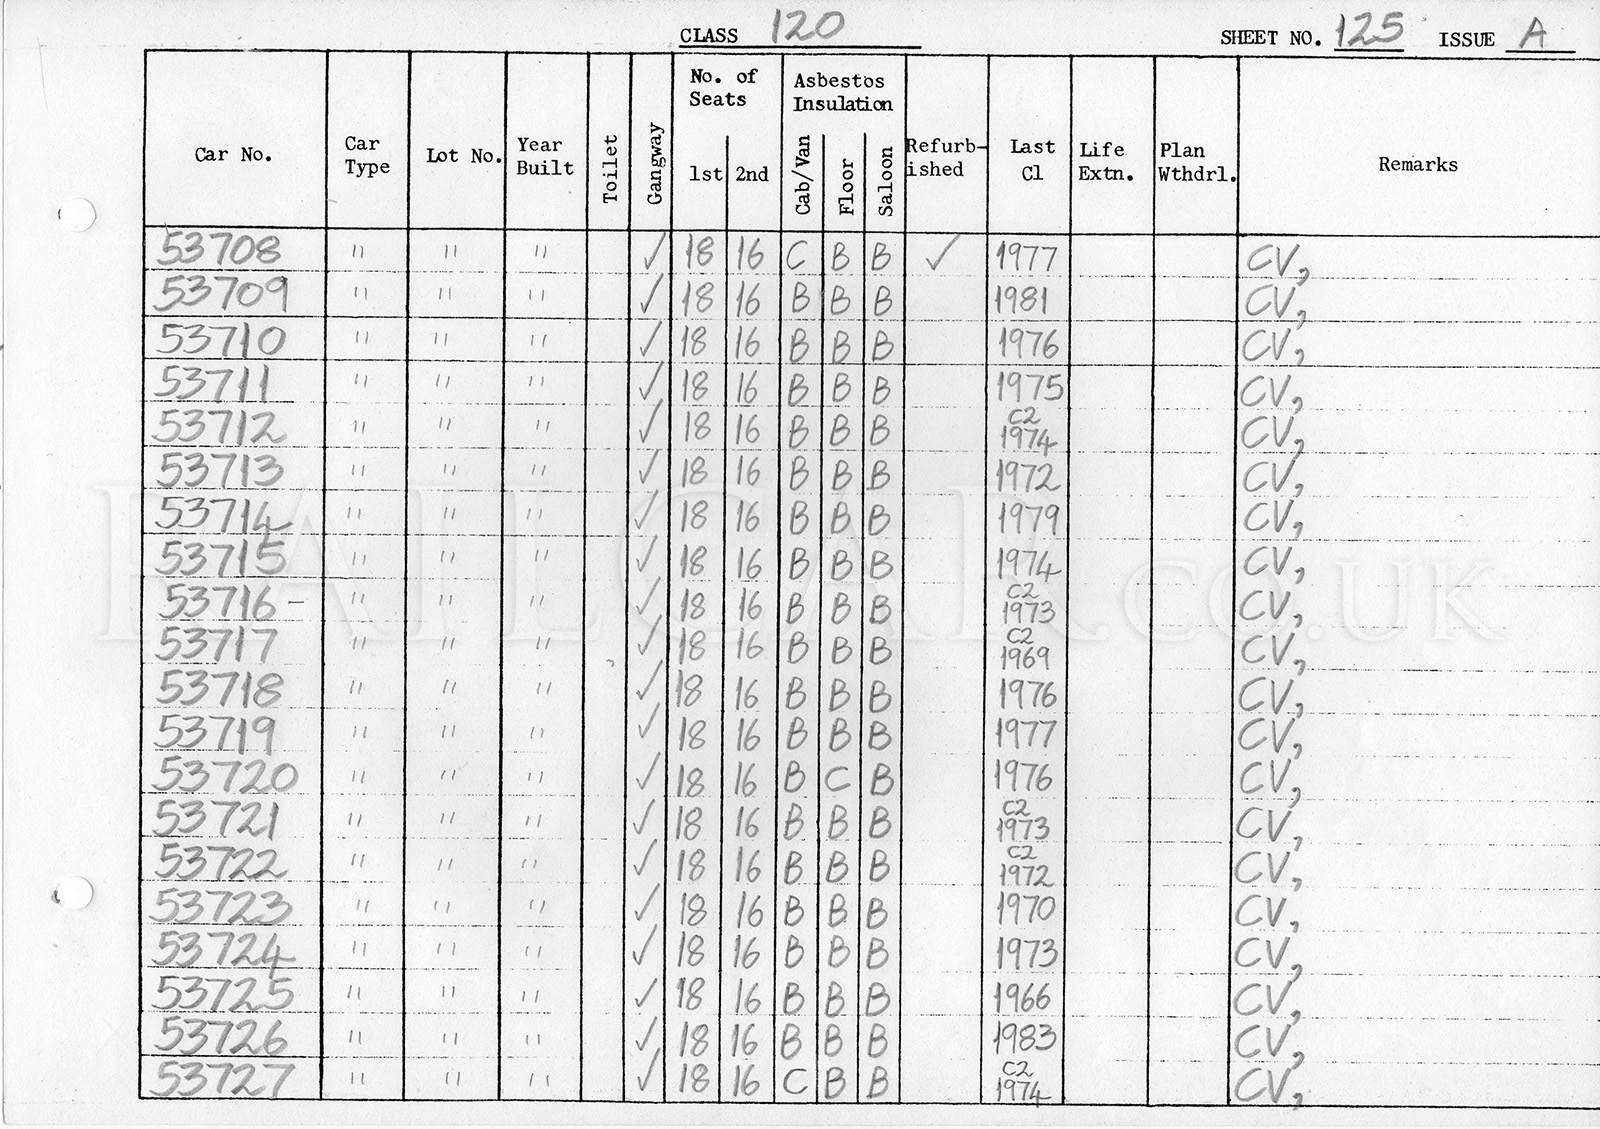 CLASS 120 SHEET NO. 125 ISSUE A
Car No. Car Type Lot No. Year Built Toilet Gangway No. of Seats 1st 2nd Asbestos Insulation Cab/Van Floor Saloon Refurb-ished Last Cl Life Extn. Plan Wthdrl. Remarks
53708 " " " ✓ 18 16 C B B ✓ 1977 CV,
53709 " " " ✓ 18 16 B B B 1981 CV,
53710 " " " ✓ 18 16 B B B 1976 CV,
53711 " " " ✓ 18 16 B B B 1975 CV,
53712 " " " ✓ 18 16 B B B C2 1974 CV,
53713 " " " ✓ 18 16 B B B 1972 CV,
53714 " " " ✓ 18 16 B B B 1979 CV,
53715 " " " ✓ 18 16 B B B 1974 CV,
53716 - " " " ✓ 18 16 B B B C2 1973 CV,
53717 " " " ✓ 18 16 B B B C2 1969 CV,
53718 " " " ✓ 18 16 B B B 1976 CV,
53719 " " " ✓ 18 16 B B B 1977 CV,
53720 " " " ✓ 18 16 B C B 1976 CV,
53721 " " " ✓ 18 16 B B B C2 1973 CV,
53722 " " " ✓ 18 16 B B B C2 1972 CV,
53723 " " " ✓ 18 16 B B B 1970 CV,
53724 " " " ✓ 18 16 B B B 1973 CV,
53725 " " " ✓ 18 16 B B B 1966 CV,
53726 " " " ✓ 18 16 B B B 1983 CV,
53727 " " " ✓ 18 16 C B B C2 1974 CV,
RAILCAR.CO.UK